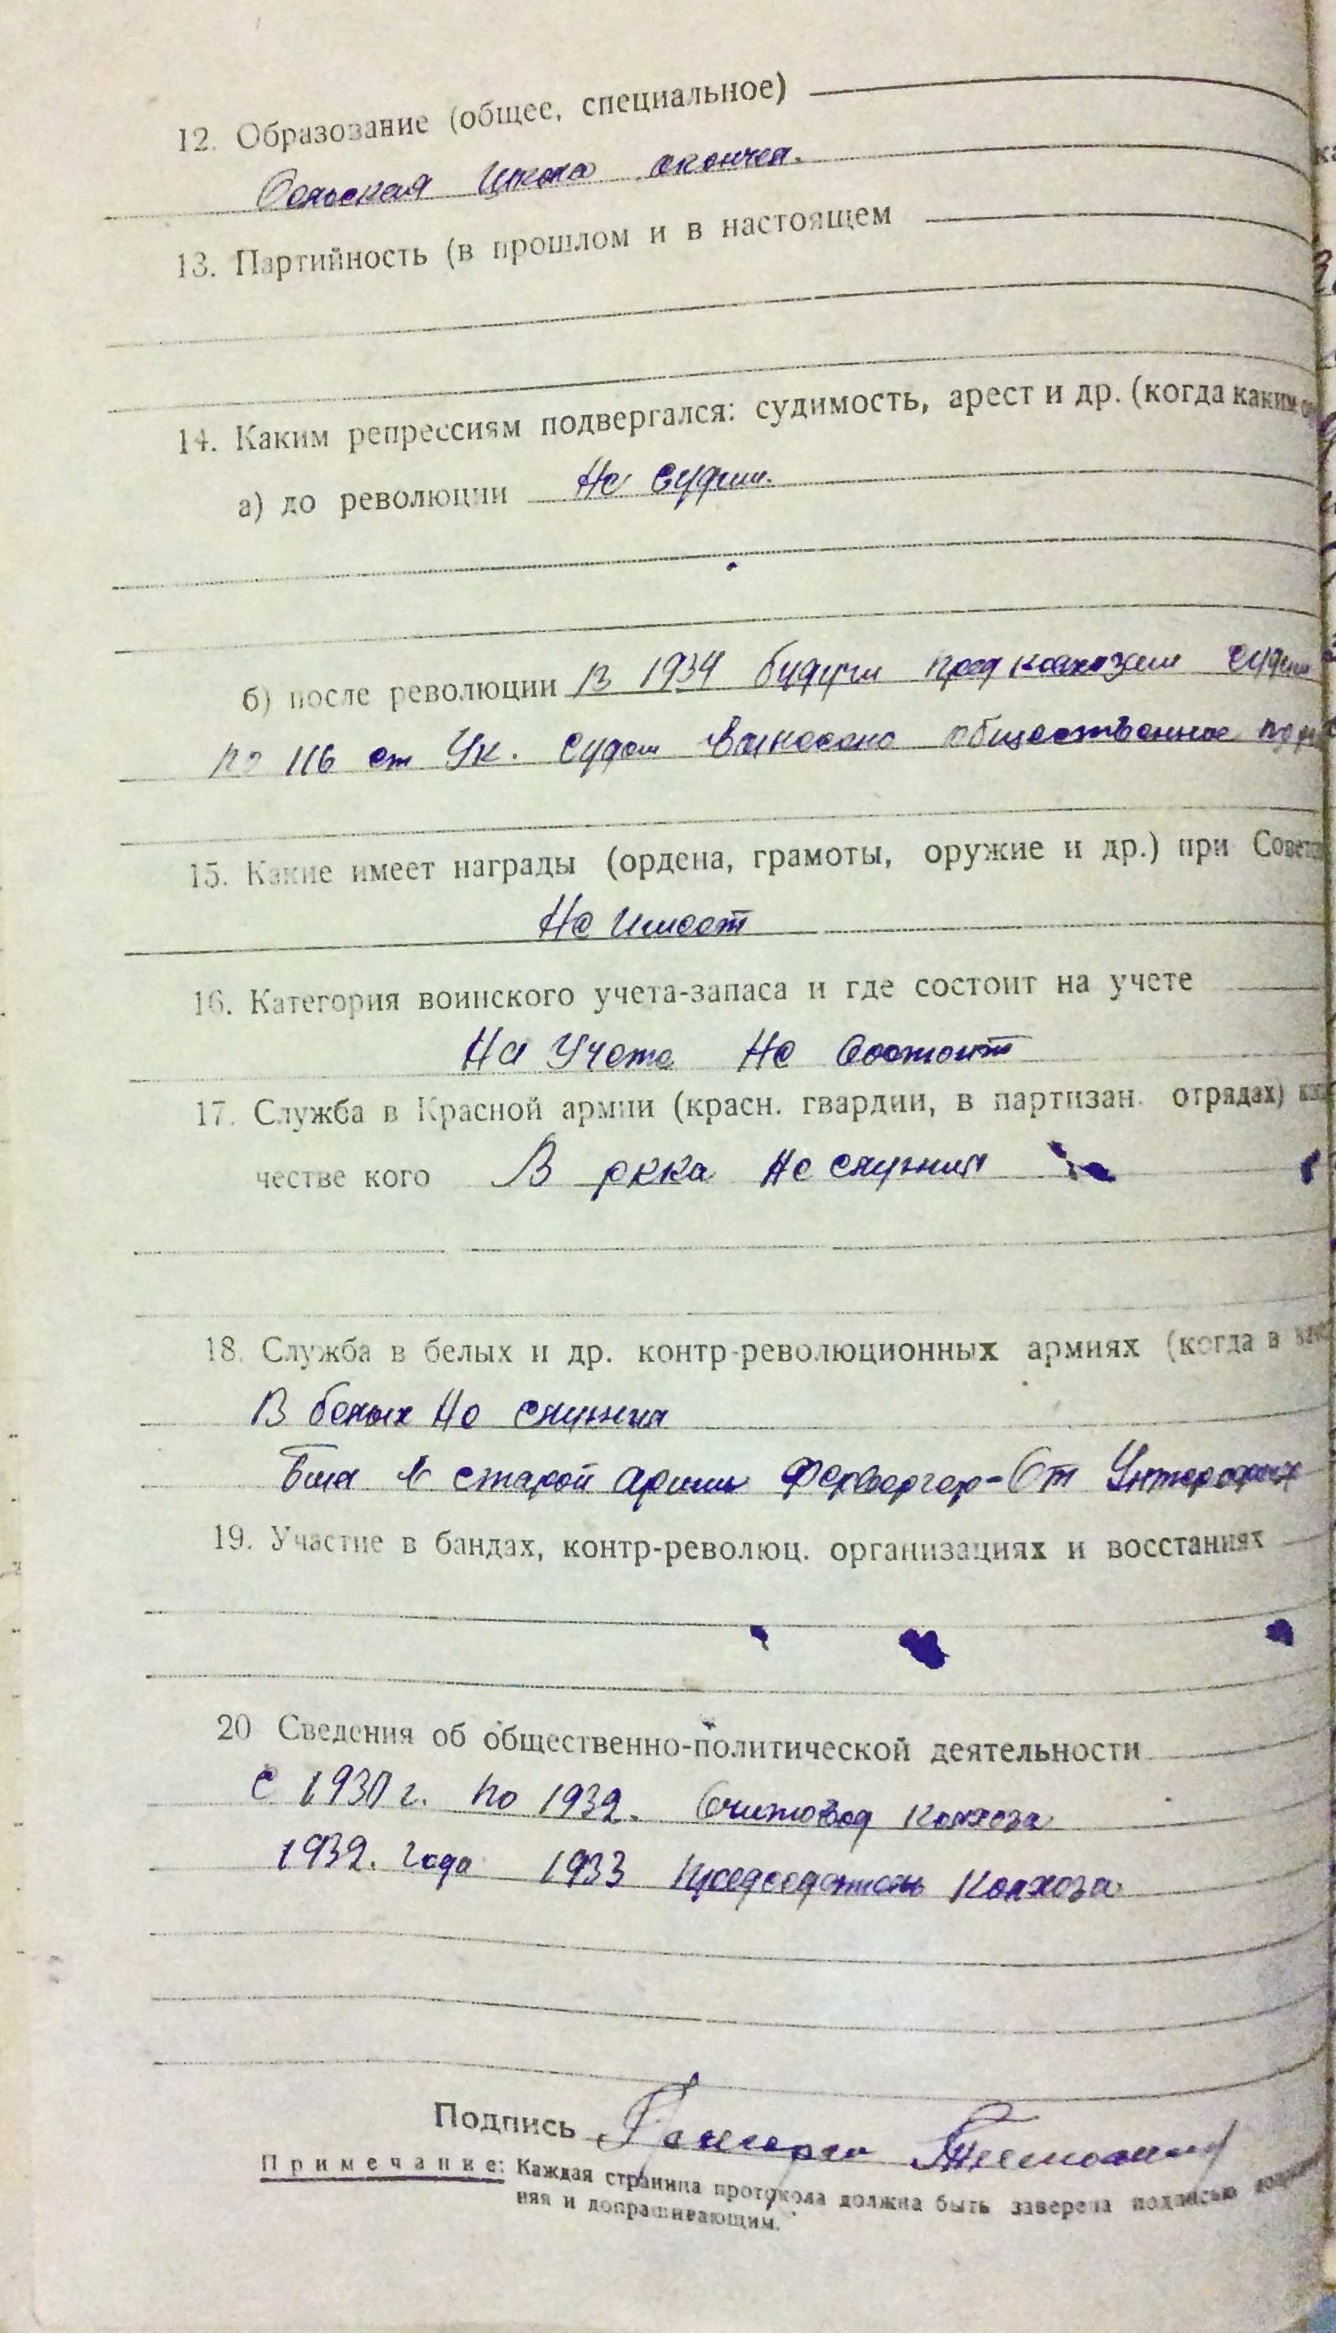 12. Образование (общее, специальное)
Сельская школа окончил.
13. Партийность (в прошлом и в настоящем
14. Каким репрессиям подвергался: судимость, арест и др. (когда каким
а) до революции Не судим.
б) после революции В 1934 будучи пред колхозам судим
по 116 ст Ук. Судом вынесено общественное
15. Какие имеет награды (ордена, грамоты, оружие и др.) при
Не имеет
16. Категория воинского учета-запаса и где состоит на учете
На Учете Не состоит
17. Служба в Красной армии (красн. гвардии, в партизан. отрядах)
честве кого В ркка Не служил
18. Служба в белых и др. контр-революционных армиях (когда в
В белых Не служил
Был в старой армии Ст
19. Участие в бандах, контр-революц. организациях и восстаниях
20 Сведения об общественно-политической деятельности
С 1930 г. по 1932. Считовод Колхоза
1932. года 1933 Председатель Колхоза
Подпись
Примечание: Каждая страница протокола должна быть заверена подписью
ния и допрашивающим.